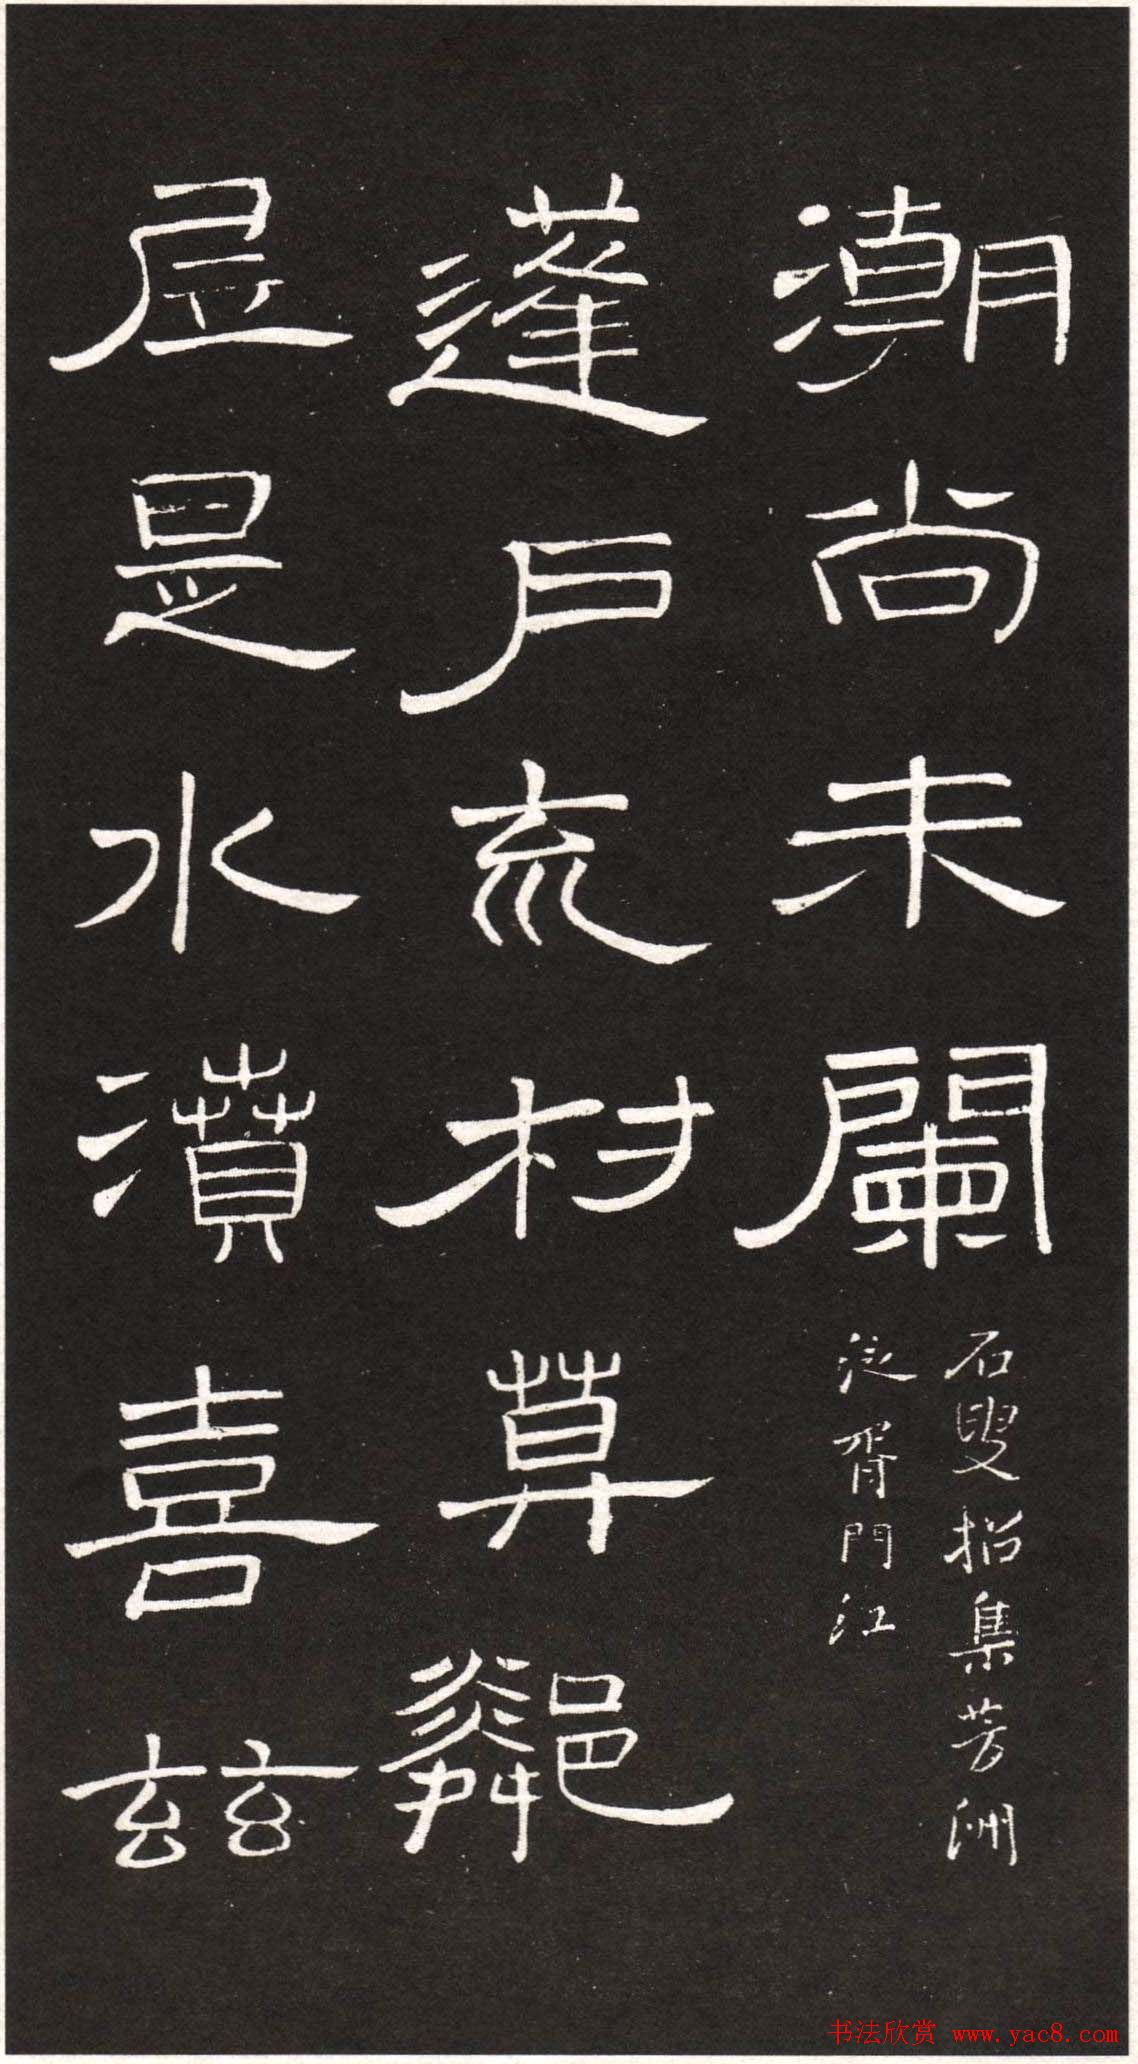 潮尚未闌
石叟招集芳洲
泛胥門江
蓬戶巟村算鄰
是水濆喜玆
书法欣赏 www.yac8.com